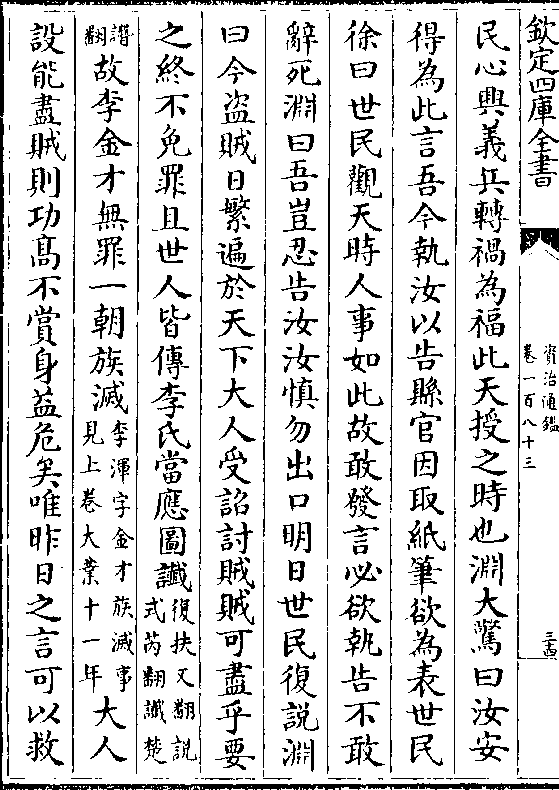 欽定四庫全書
資治通鑑
卷一百八十三
民心興義兵轉禍為福此天授之時也淵大驚曰汝安
得為此言吾今執汝以告縣官因取紙筆欲為表世民
徐曰世民觀天時人事如此故敢發言必欲執告不敢
辭死淵曰吾豈忍告汝汝慎勿出口明日世民復説淵
曰今盗賊日繁遍於天下大人受詔討賊賊可盡乎要
之終不免罪且世人皆傳李氏當應圖讖復扶又翻説式芮翻讖楚
譖翻故李金才無罪一朝族滅李渾字金才族滅事見上卷大業十一年大人
設能盡賊則功髙不賞身益危矣唯昨日之言可以救